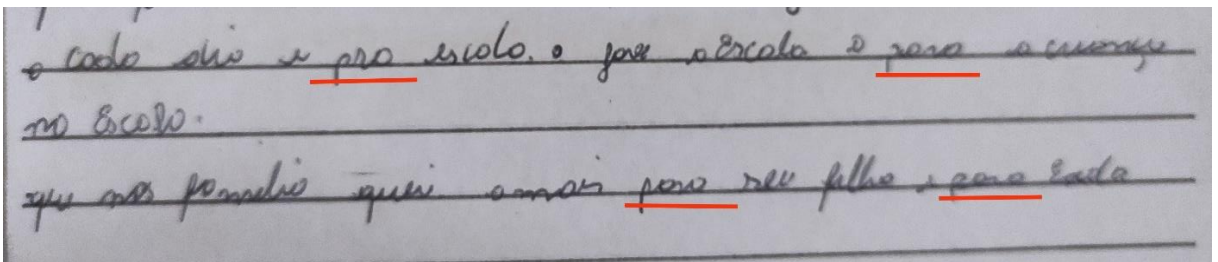 o cada dia e pra escola. o faze a Escola e para a criança
no Escola.
que nos familia quei amais para seu filho e para cada